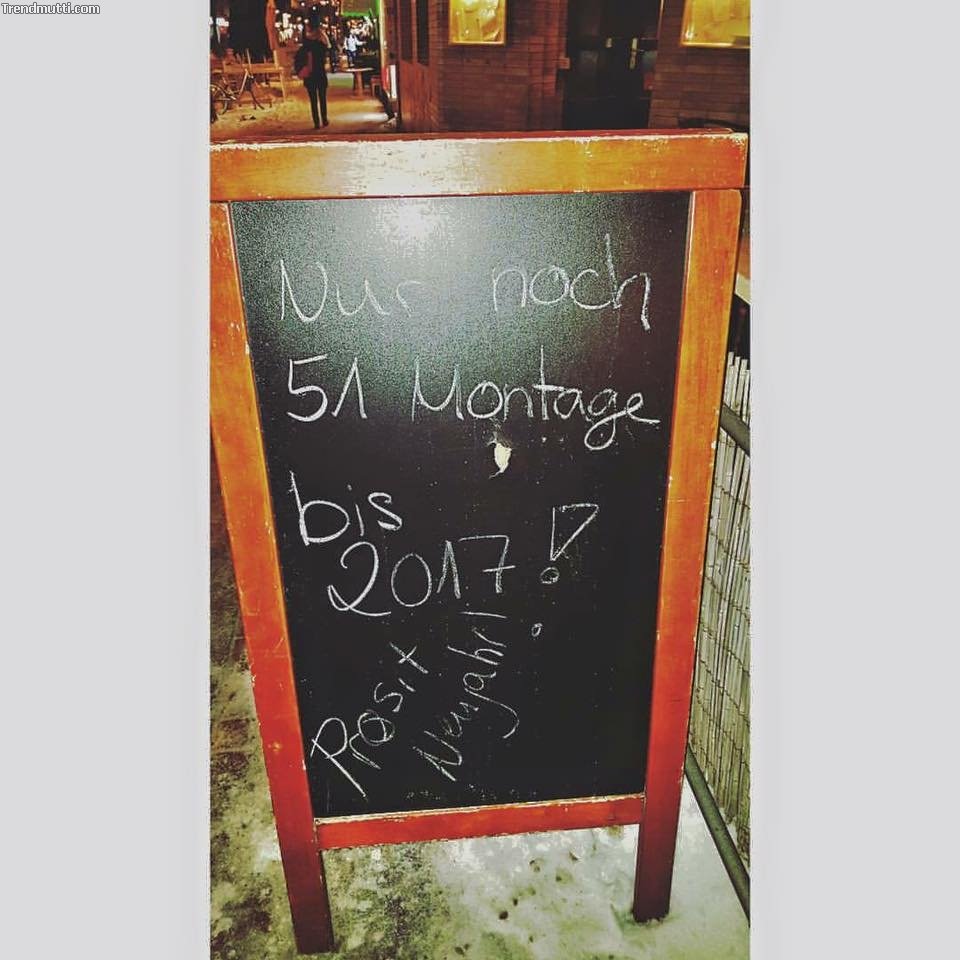 Trendmutti.com
Nur noch
51 Montage
bis
2017!
Prosit
Neujahr!